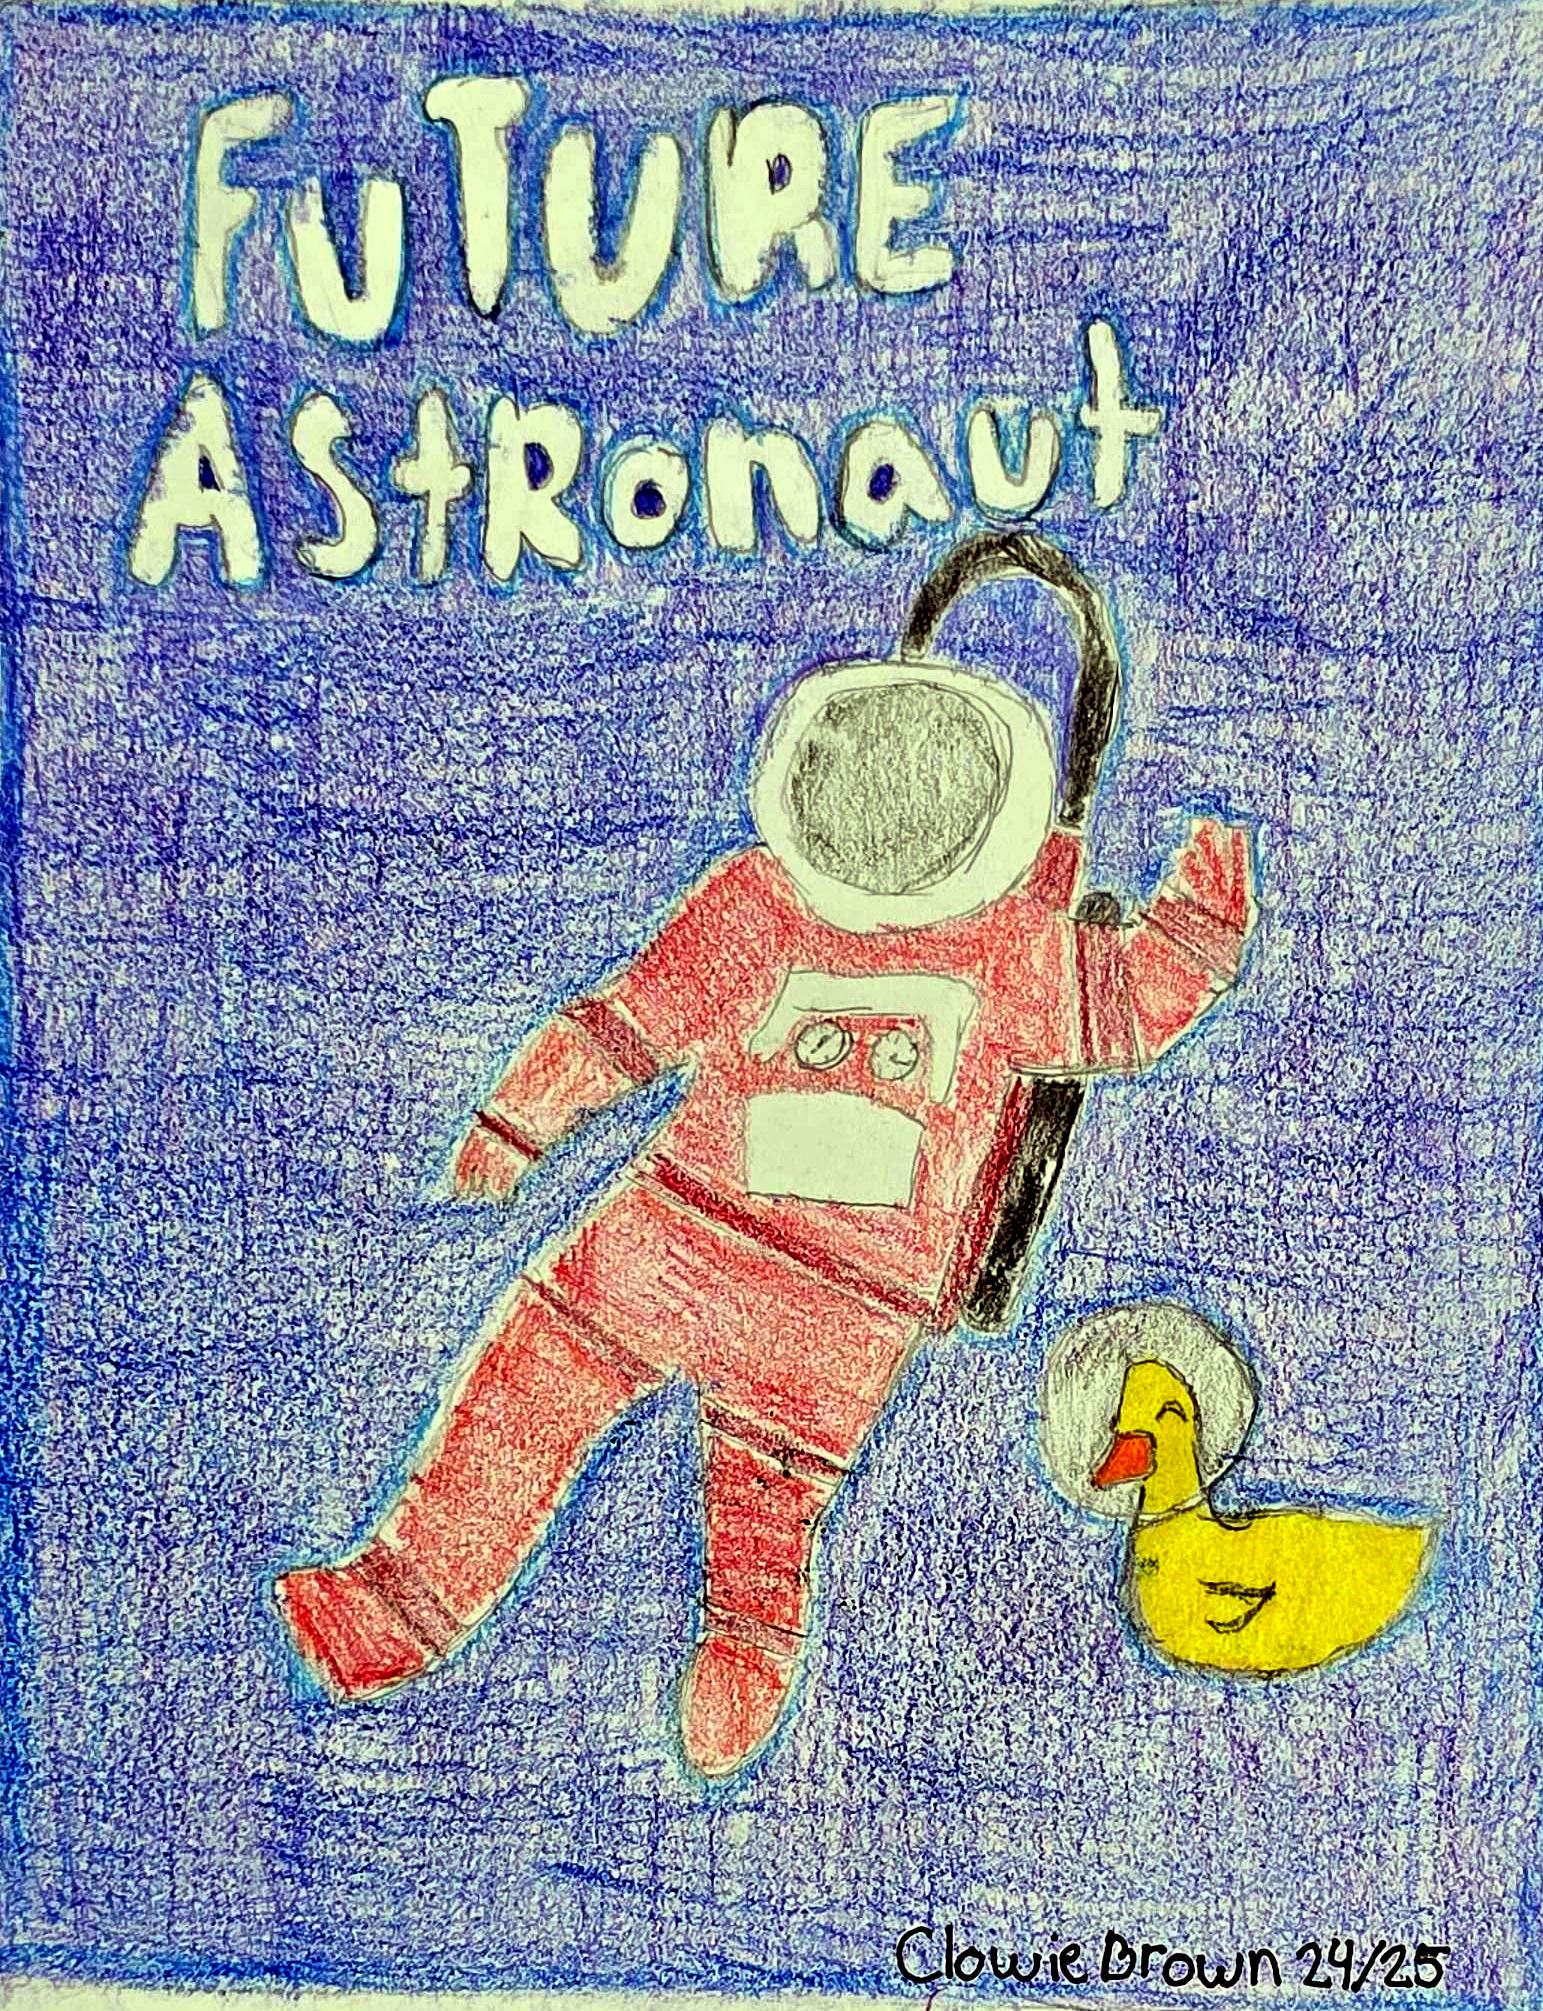 FUTURE
AStRonaut
Clowie Brown 24/25